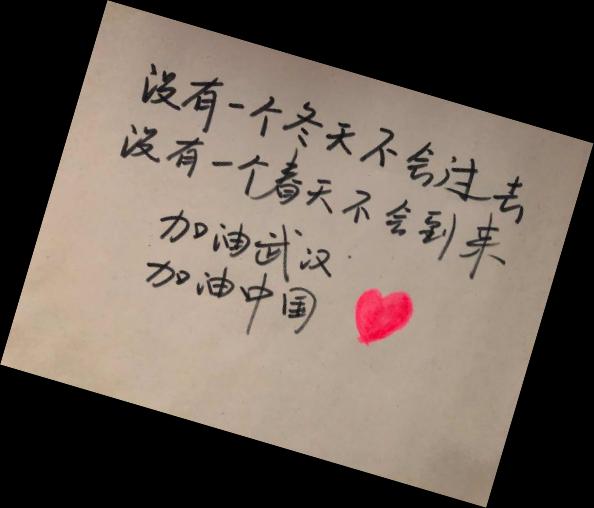 没有一个冬天不会过去
没有一个春天不会到来
加油武汉
加油中国